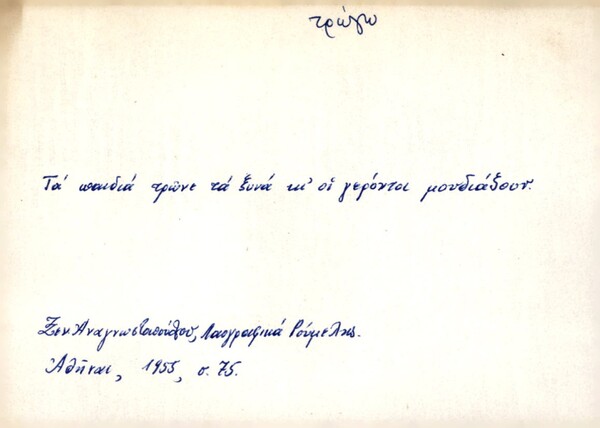 τρώγω
Τά παιδιά τρῶνε τά ξυνά κι' οἱ γερόντοι μουδιάζουν.
Ξεν. Ἀναγνωστοπούλου, Λαογραφικά Ρούμελης.
Ἀθῆναι, 1955, σ. 75.